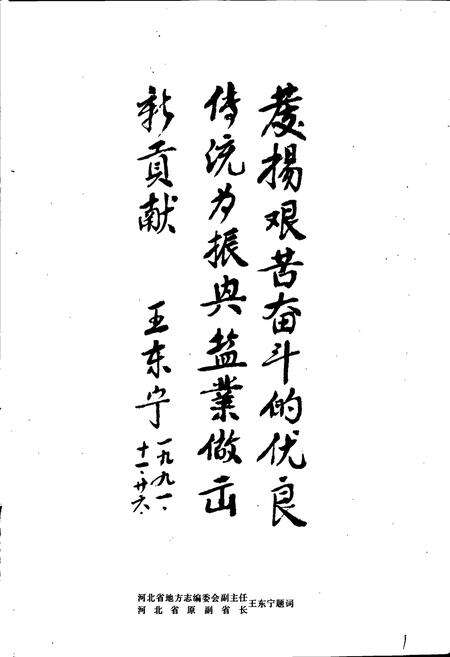 發揚艰苦奋斗的优良
传统为振兴盐業做出
新貢献
王东宁
一九九一·
十一·廿六·
河北省地方志编委会副主任
河北省原副省长
王东宁题词
1